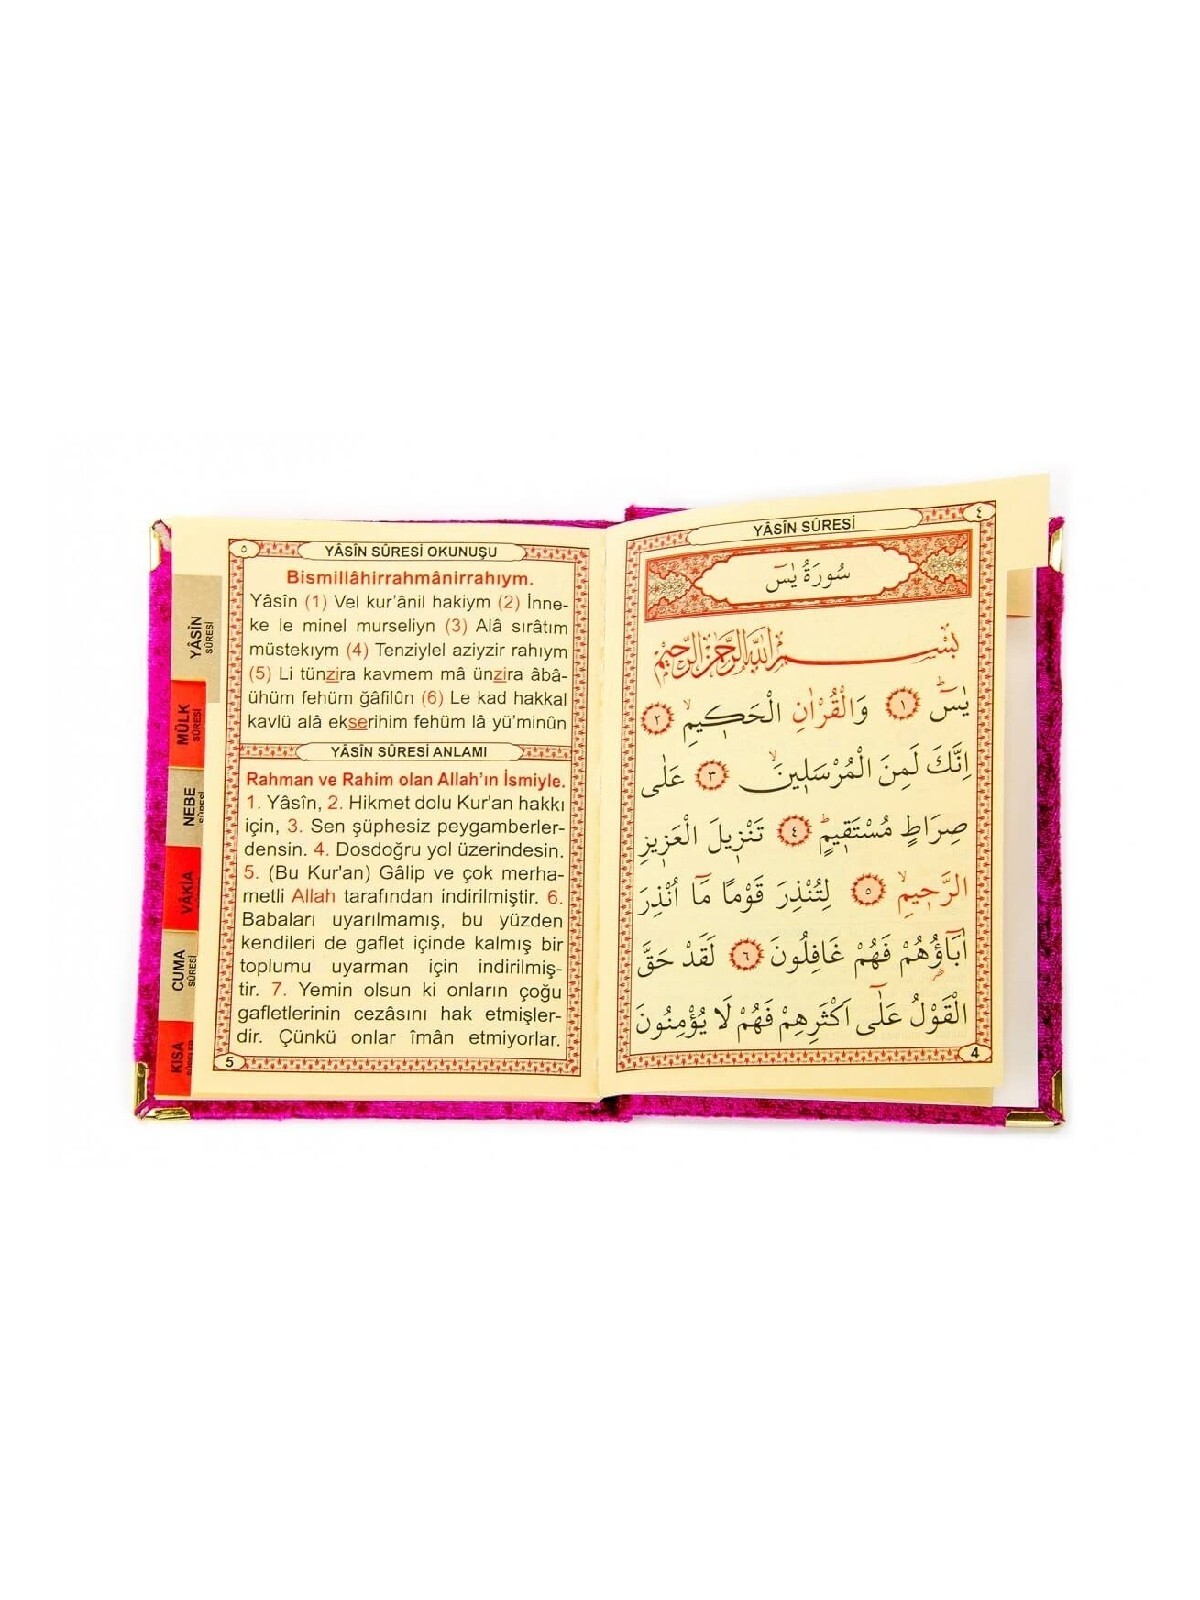 YÂSİN
SÛRESİ
MÜLK
SÛRESİ
NEBE
SÛRESİ
VÂKIA
CUMA
SÛRESİ
KISA
٥
YÂSÎN SÛRESİ OKUNUŞU
Bismillâhirrahmânirrahıym.
Yâsîn (1) Vel kur'ânil hakiym (2) İnne-
ke le minel murseliyn (3) Alâ sırâtım
müstekıym (4) Tenziylel aziyzir rahıym
(5) Li tünzira kavmem mâ ünzira âbâ-
ühüm fehüm ğâfilûn (6) Le kad hakkal
kavlü alâ ekserihim fehüm lâ yü'minûn
YÂSÎN SÛRESİ ANLAMI
Rahman ve Rahim olan Allah'ın İsmiyle.
1. Yâsîn, 2. Hikmet dolu Kur'an hakkı
için, 3. Sen şüphesiz peygamberler-
densin. 4. Dosdoğru yol üzerindesin.
5. (Bu Kur'an) Gâlip ve çok merha-
metli Allah tarafından indirilmiştir. 6.
Babaları uyarılmamış, bu yüzden
kendileri de gaflet içinde kalmış bir
toplumu uyarman için indirilmiş-
tir. 7. Yemin olsun ki onların çoğu
gafletlerinin cezâsını hak etmişler-
dir. Çünkü onlar îmân etmiyorlar.
5
YÂSÎN SÛRESİ
٤
سُورَةُ يٰسٓ
بِسْمِ اللّٰهِ الرَّحْمٰنِ الرَّحِيمِ
يٰسٓ ١ وَالْقُرْاٰنِ الْحَكِيمِ ٢
اِنَّكَ لَمِنَ الْمُرْسَلِينَ ٣ عَلٰى
صِرَاطٍ مُسْتَقِيمٍ ٤ تَنْزِيلَ الْعَزِيزِ
الرَّحِيمِ ٥ لِتُنْذِرَ قَوْمًا مَٓا اُنْذِرَ
اٰبَٓاؤُهُمْ فَهُمْ غَافِلُونَ ٦ لَقَدْ حَقَّ
الْقَوْلُ عَلٰٓى اَكْثَرِهِمْ فَهُمْ لَا يُؤْمِنُونَ
4